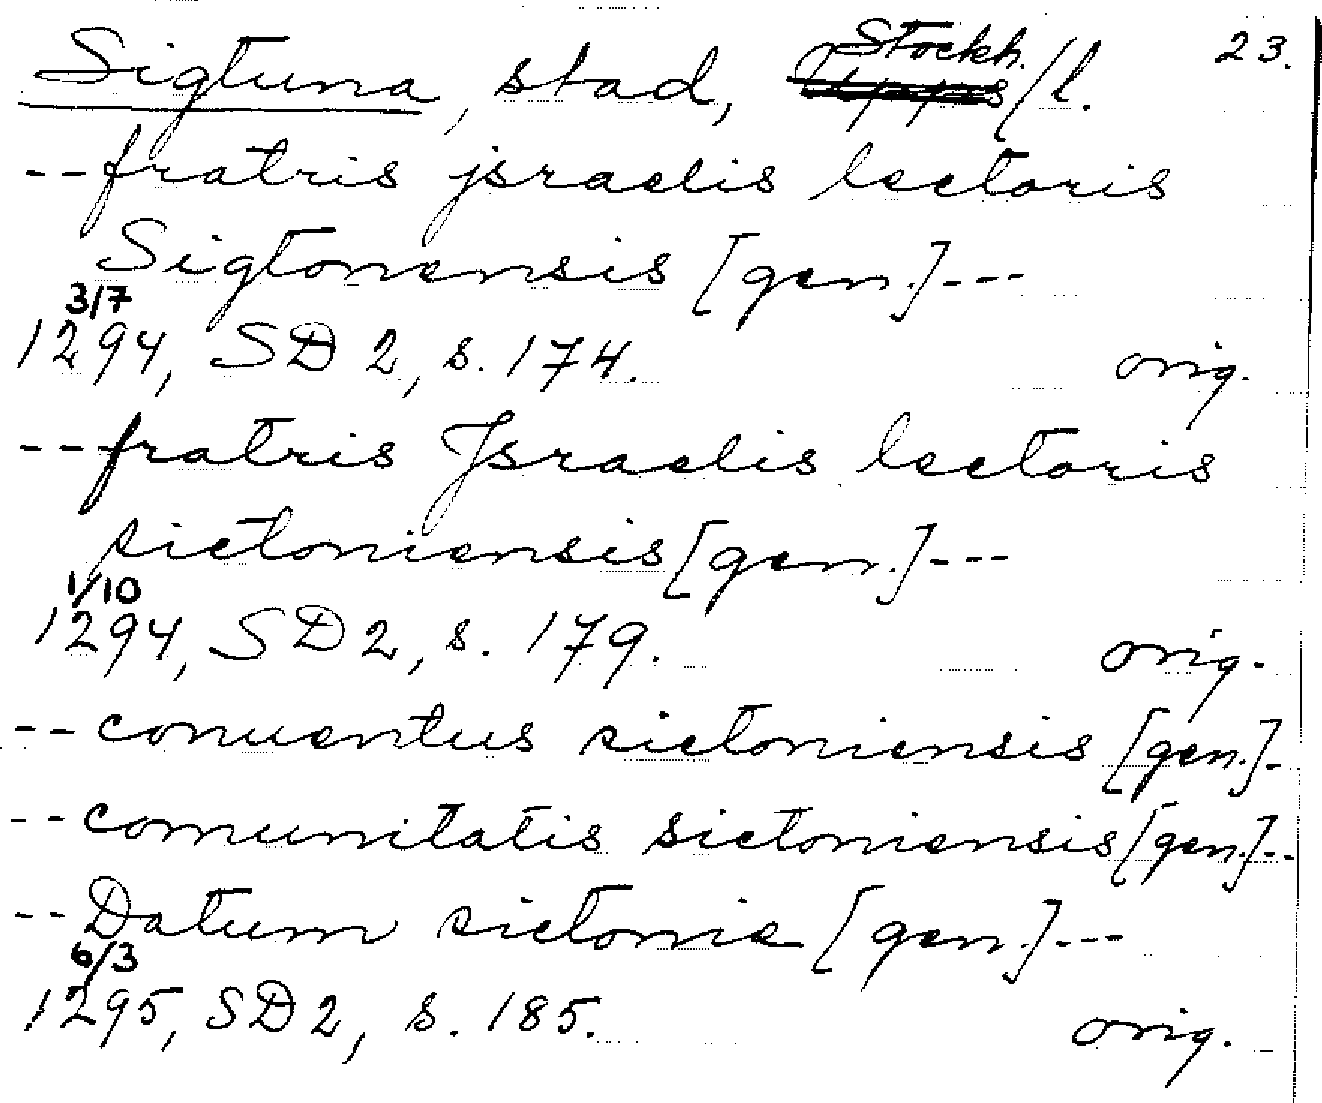 Sigtuna, stad, Stockh. Upps/l. 23.
--fratris jsraelis lectoris
Sigtonensis [gen.]---
3/7
1294, SD 2, s. 174. orig.
--fratris Jsraelis lectoris
sictoniensis [gen.]---
1/10
1294, SD 2, s. 179. orig.
--conuentus sictoniensis [gen.]-
--comunitatis sictoniensis [gen.]--
--Datum sictonie [gen.]---
6/3
1295, SD 2, s. 185. orig.